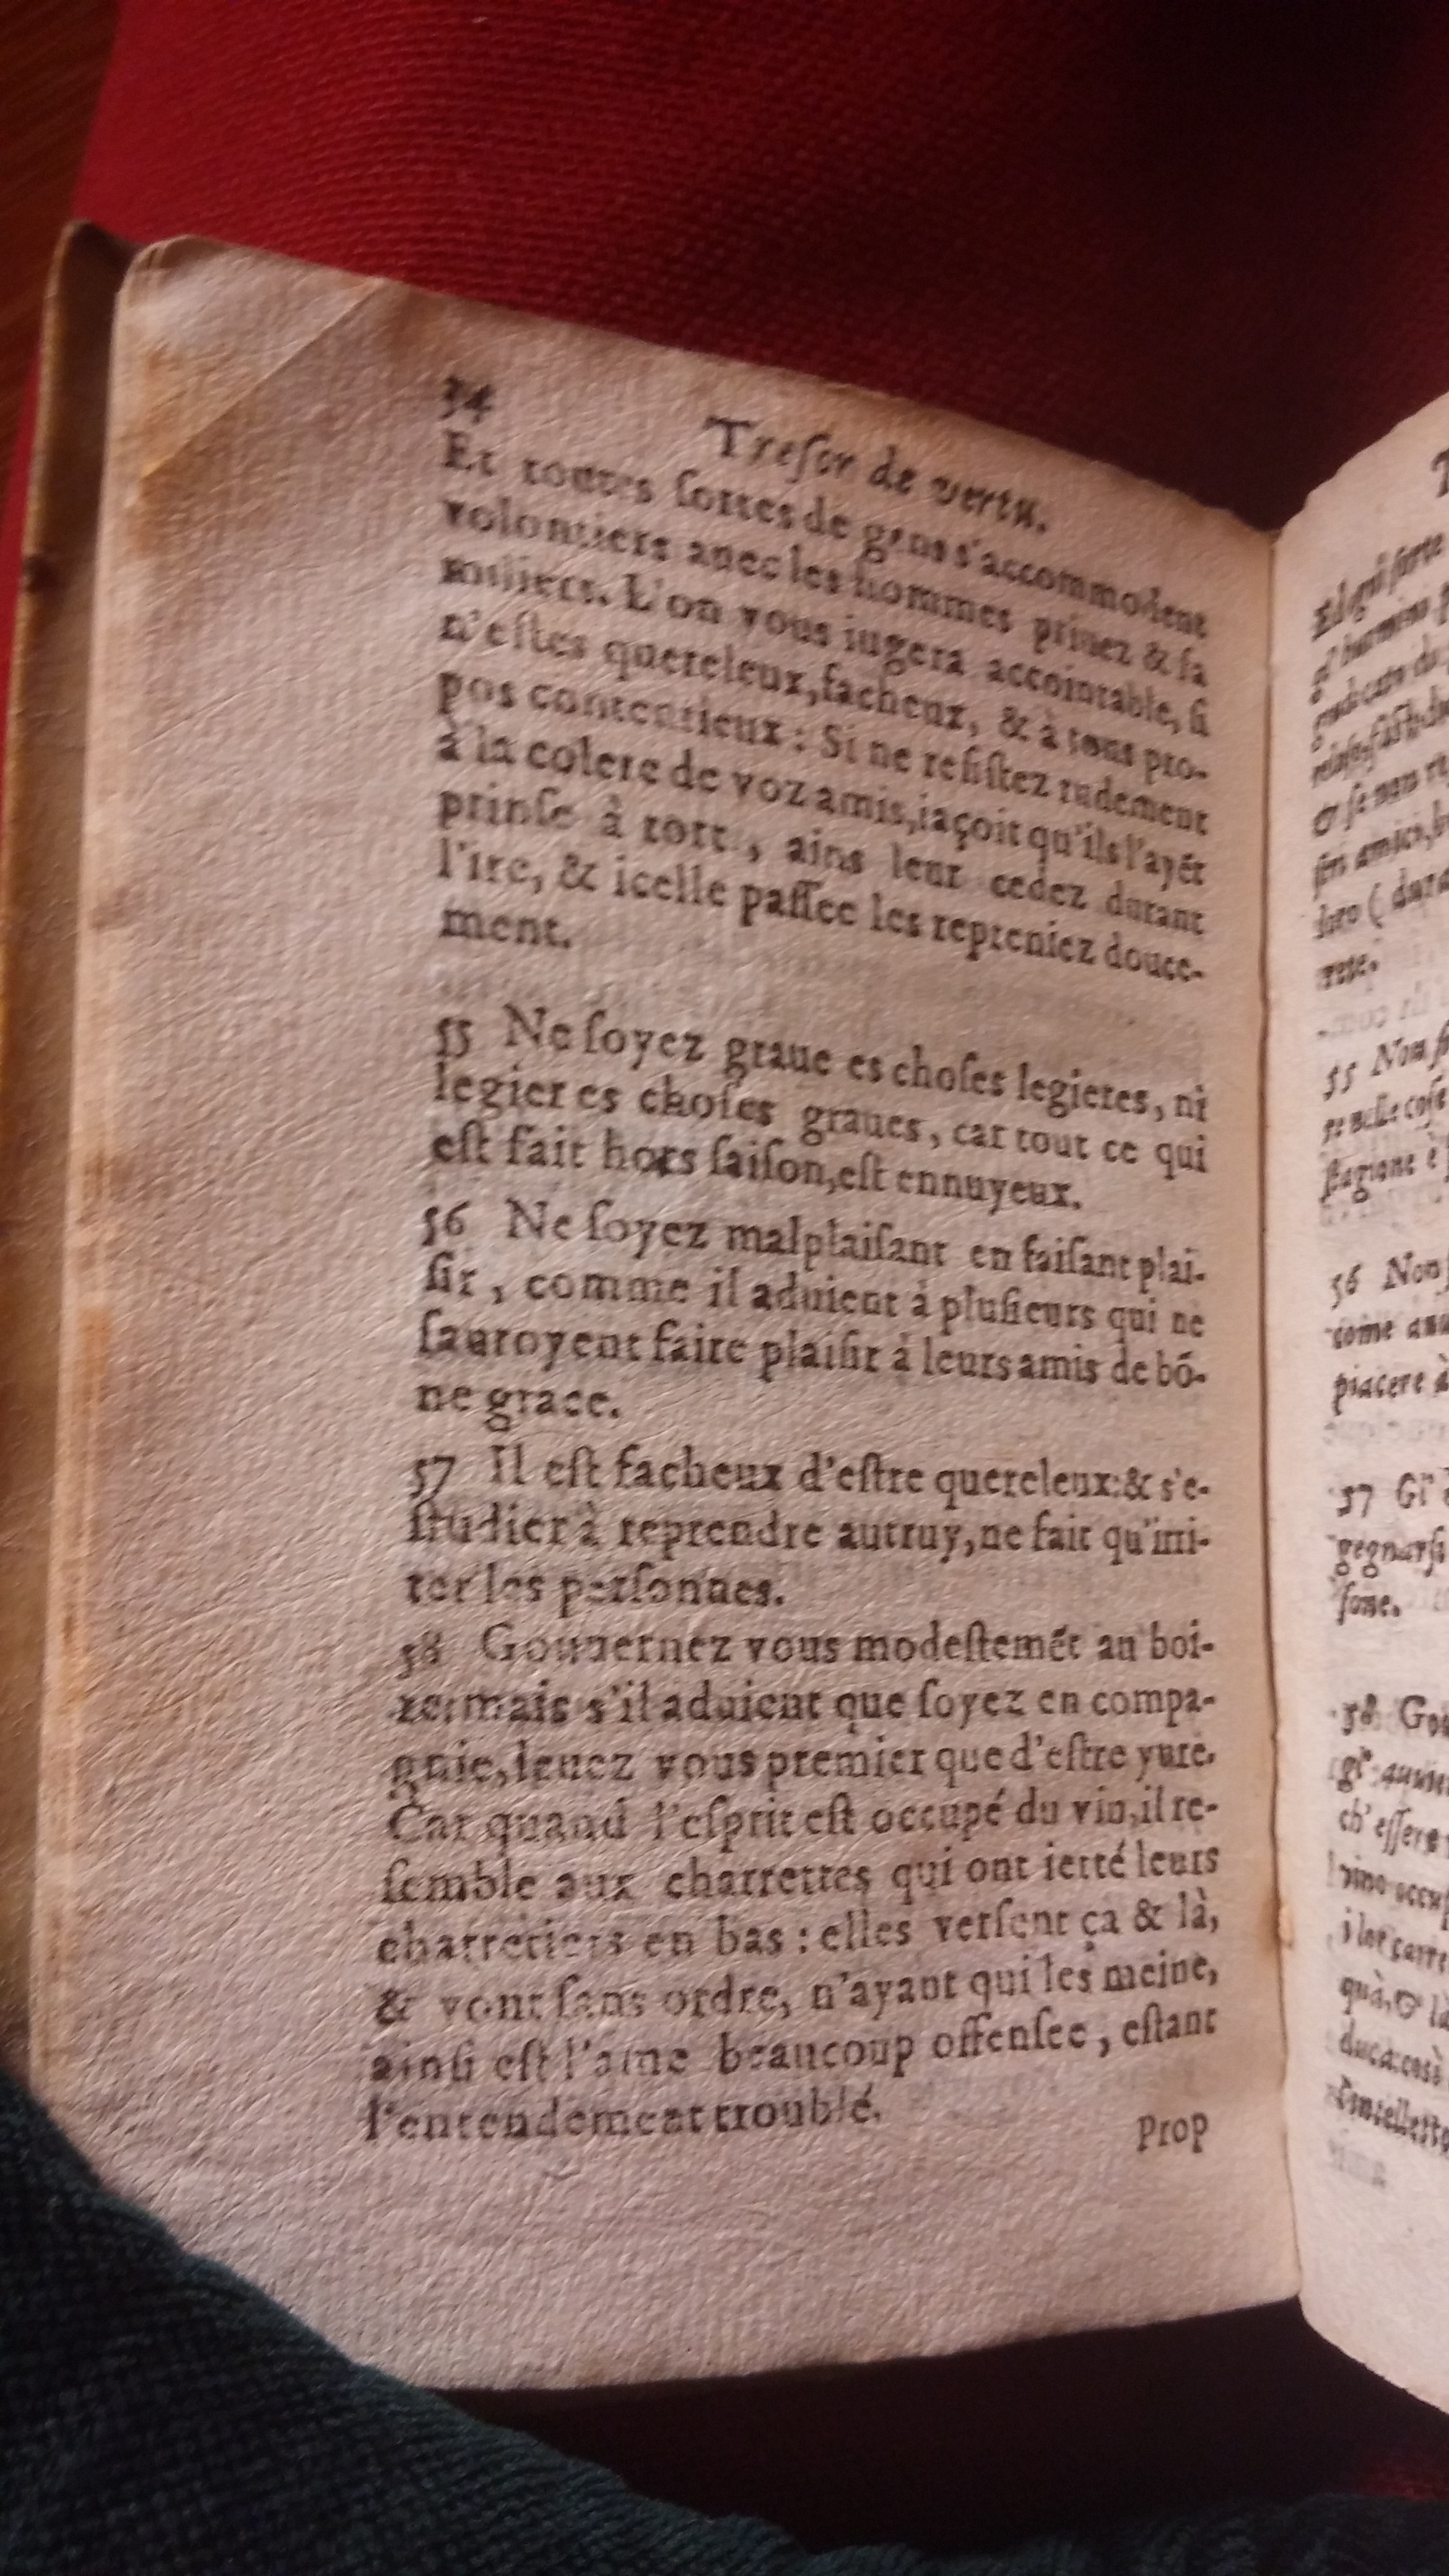 34
Treſor de vertu.
Et toutes ſortes de gens s'accommodent
volontiers auec les hommes priuez & fa
miliers. L'on vous iugera accointable, ſi
n'eſtes quereleux, facheux, & à tous pro-
pos contentieux : Si ne reſiſtez rudement
à la colere de voz amis, iaçoit qu'ils l'ayẽt
prinſe à tort, ains leur cedez durant
l'ire, & icelle paſſee les repreniez douce-
ment.
55 Ne ſoyez graue es choſes legieres, ni
legier es choſes graues, car tout ce qui
eſt fait hors ſaiſon, eſt ennuyeux.
56 Ne ſoyez malplaiſant en faiſant plai-
ſir, comme il aduient à pluſieurs qui ne
ſauroyent faire plaiſir à leurs amis de bõ-
ne grace.
57 Il eſt facheux d'eſtre quereleux: & s'e-
ſtudier à reprendre autruy, ne fait qu'irri-
ter les perſonnes.
58 Gouuernez vous modeſtemẽt au boi-
re: mais s'il aduient que ſoyez en compa-
gnie, leuez vous premier que d'eſtre yure.
Car quand l'eſprit eſt occupé du vin, il re-
ſemble aux charrettes qui ont ietté leurs
charretiers en bas : elles verſent ça & là,
& vont ſans ordre, n'ayant qui les meine,
ainſi eſt l'ame beaucoup offenſee, eſtant
l'entendement troublé.
Prop
55 Non
56 Non
come
piacere à
57 Gl'
ſone.
58 Go
ch' eſſere